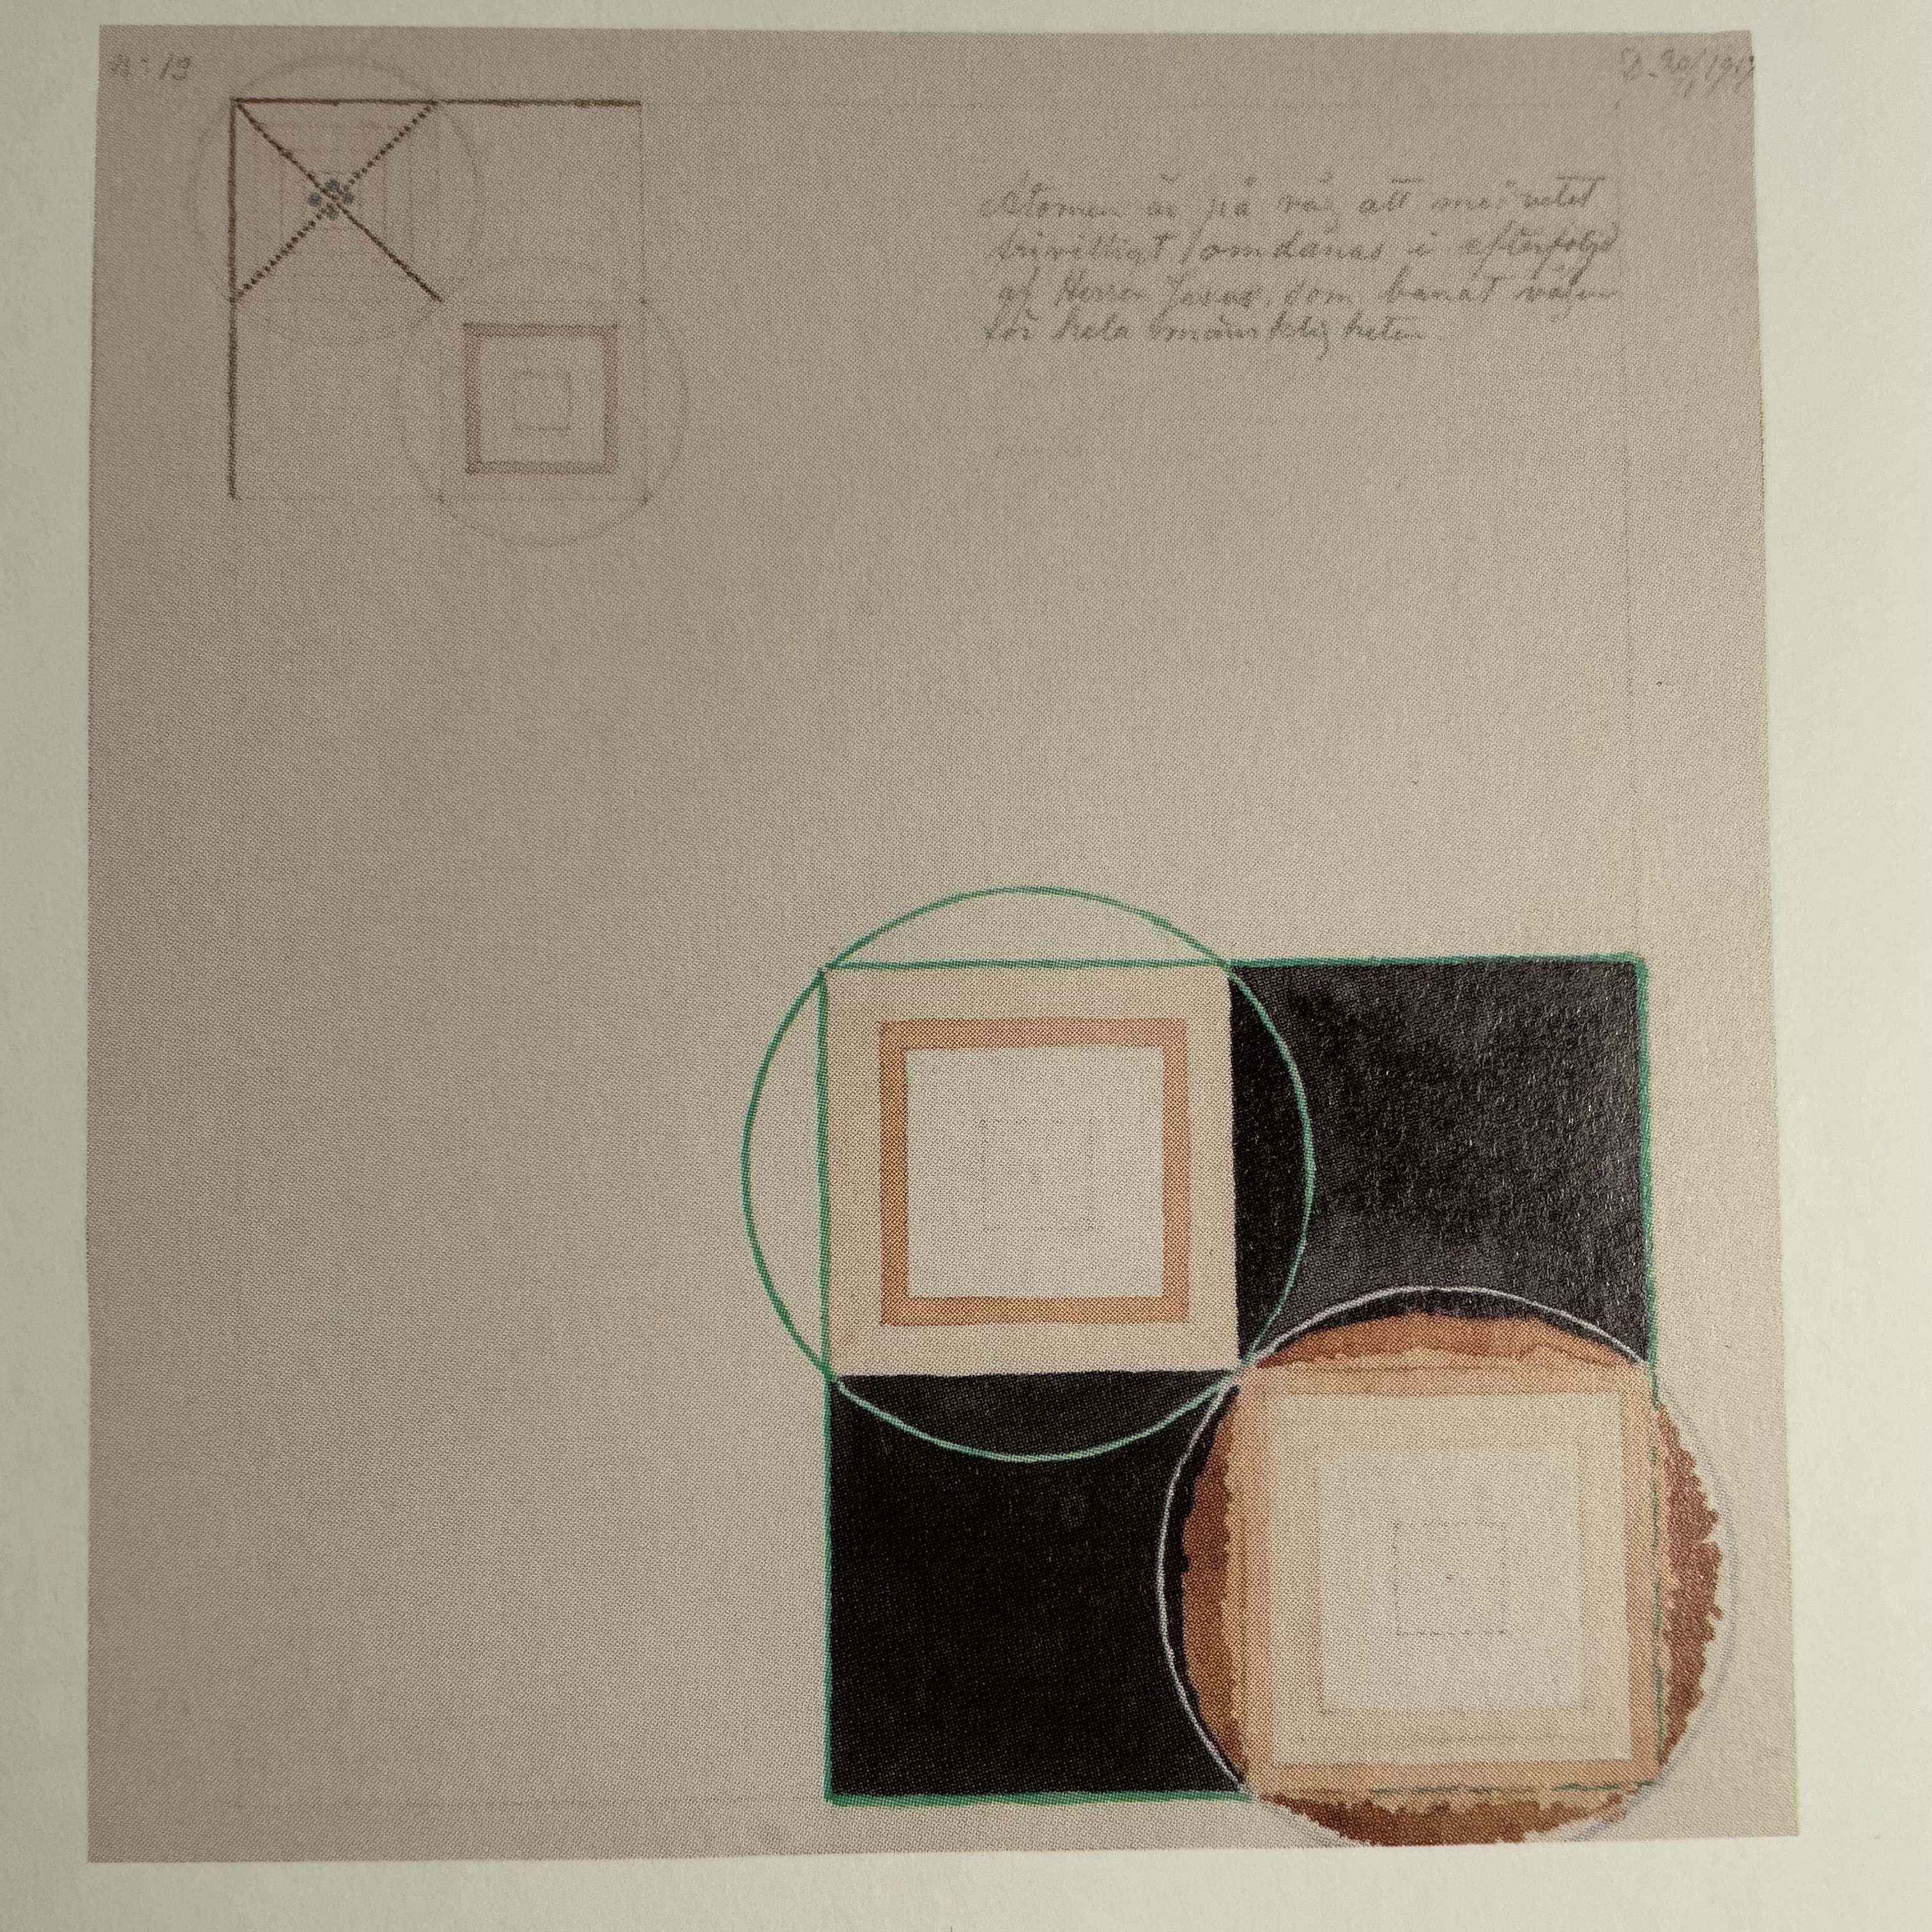 n: 19
D. 20/1917
Atomen är på väg att medvetet
frivilligt omdanas i efterföljd
af Herren Jesus, som banat vägen
för hela mänskligheten